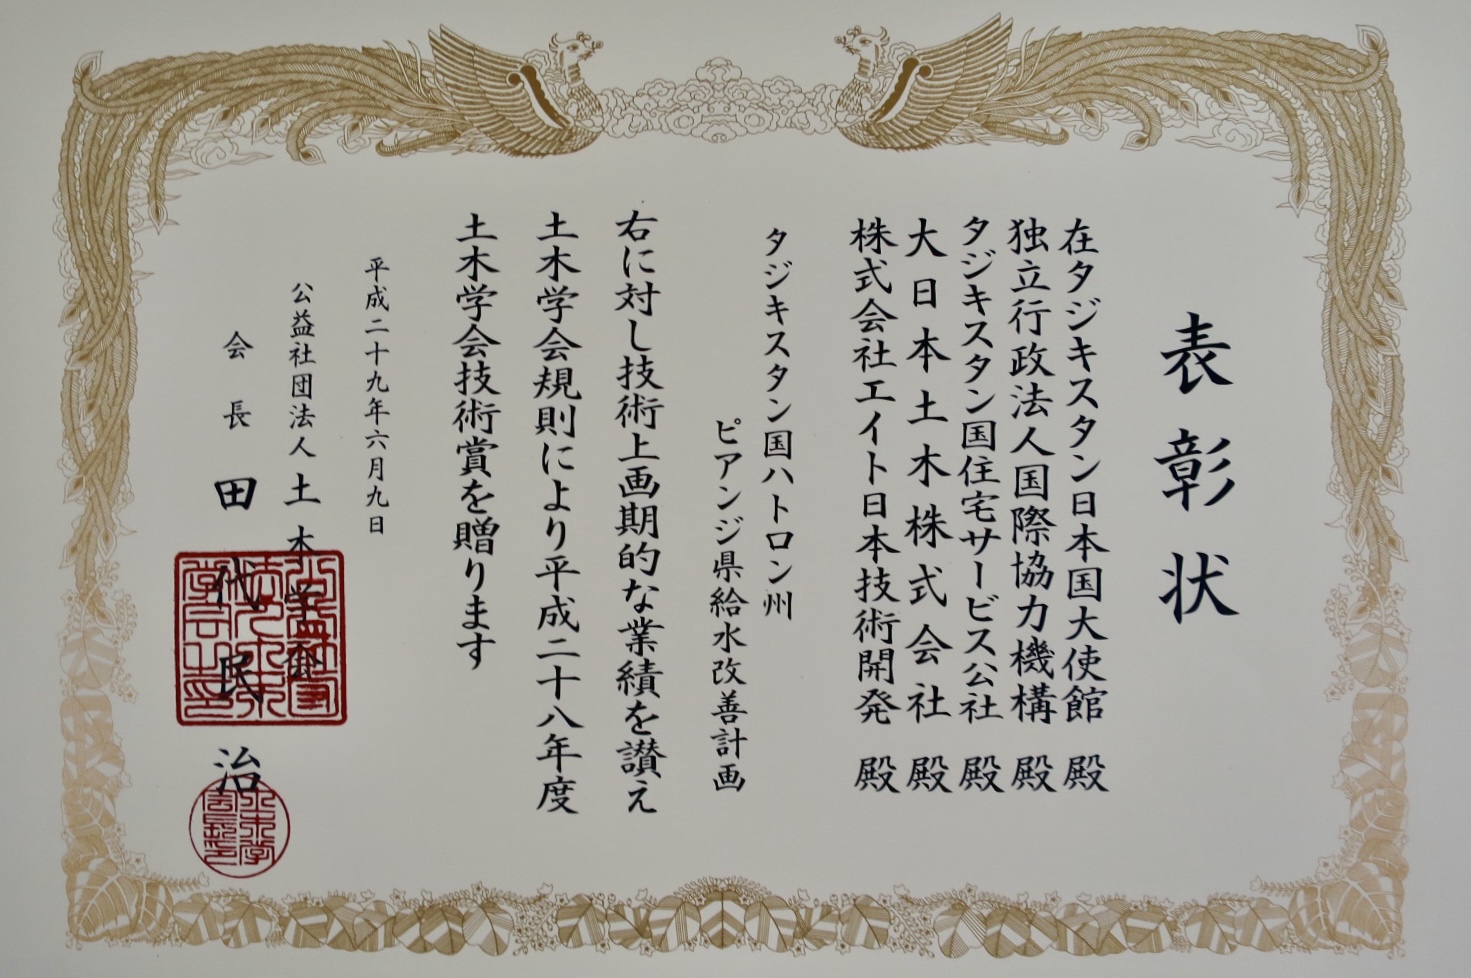 表彰状
在タジキスタン日本国大使館 殿
独立行政法人国際協力機構 殿
タジキスタン国住宅サービス公社 殿
大日本土木株式会社 殿
株式会社エイト日本技術開発 殿
タジキスタン国ハトロン州
ピアンジ県給水改善計画
右に対し技術上画期的な業績を讃え
土木学会規則により平成二十八年度
土木学会技術賞を贈ります
平成二十九年六月九日
公益社団法人 土木学会
会長 田代民治